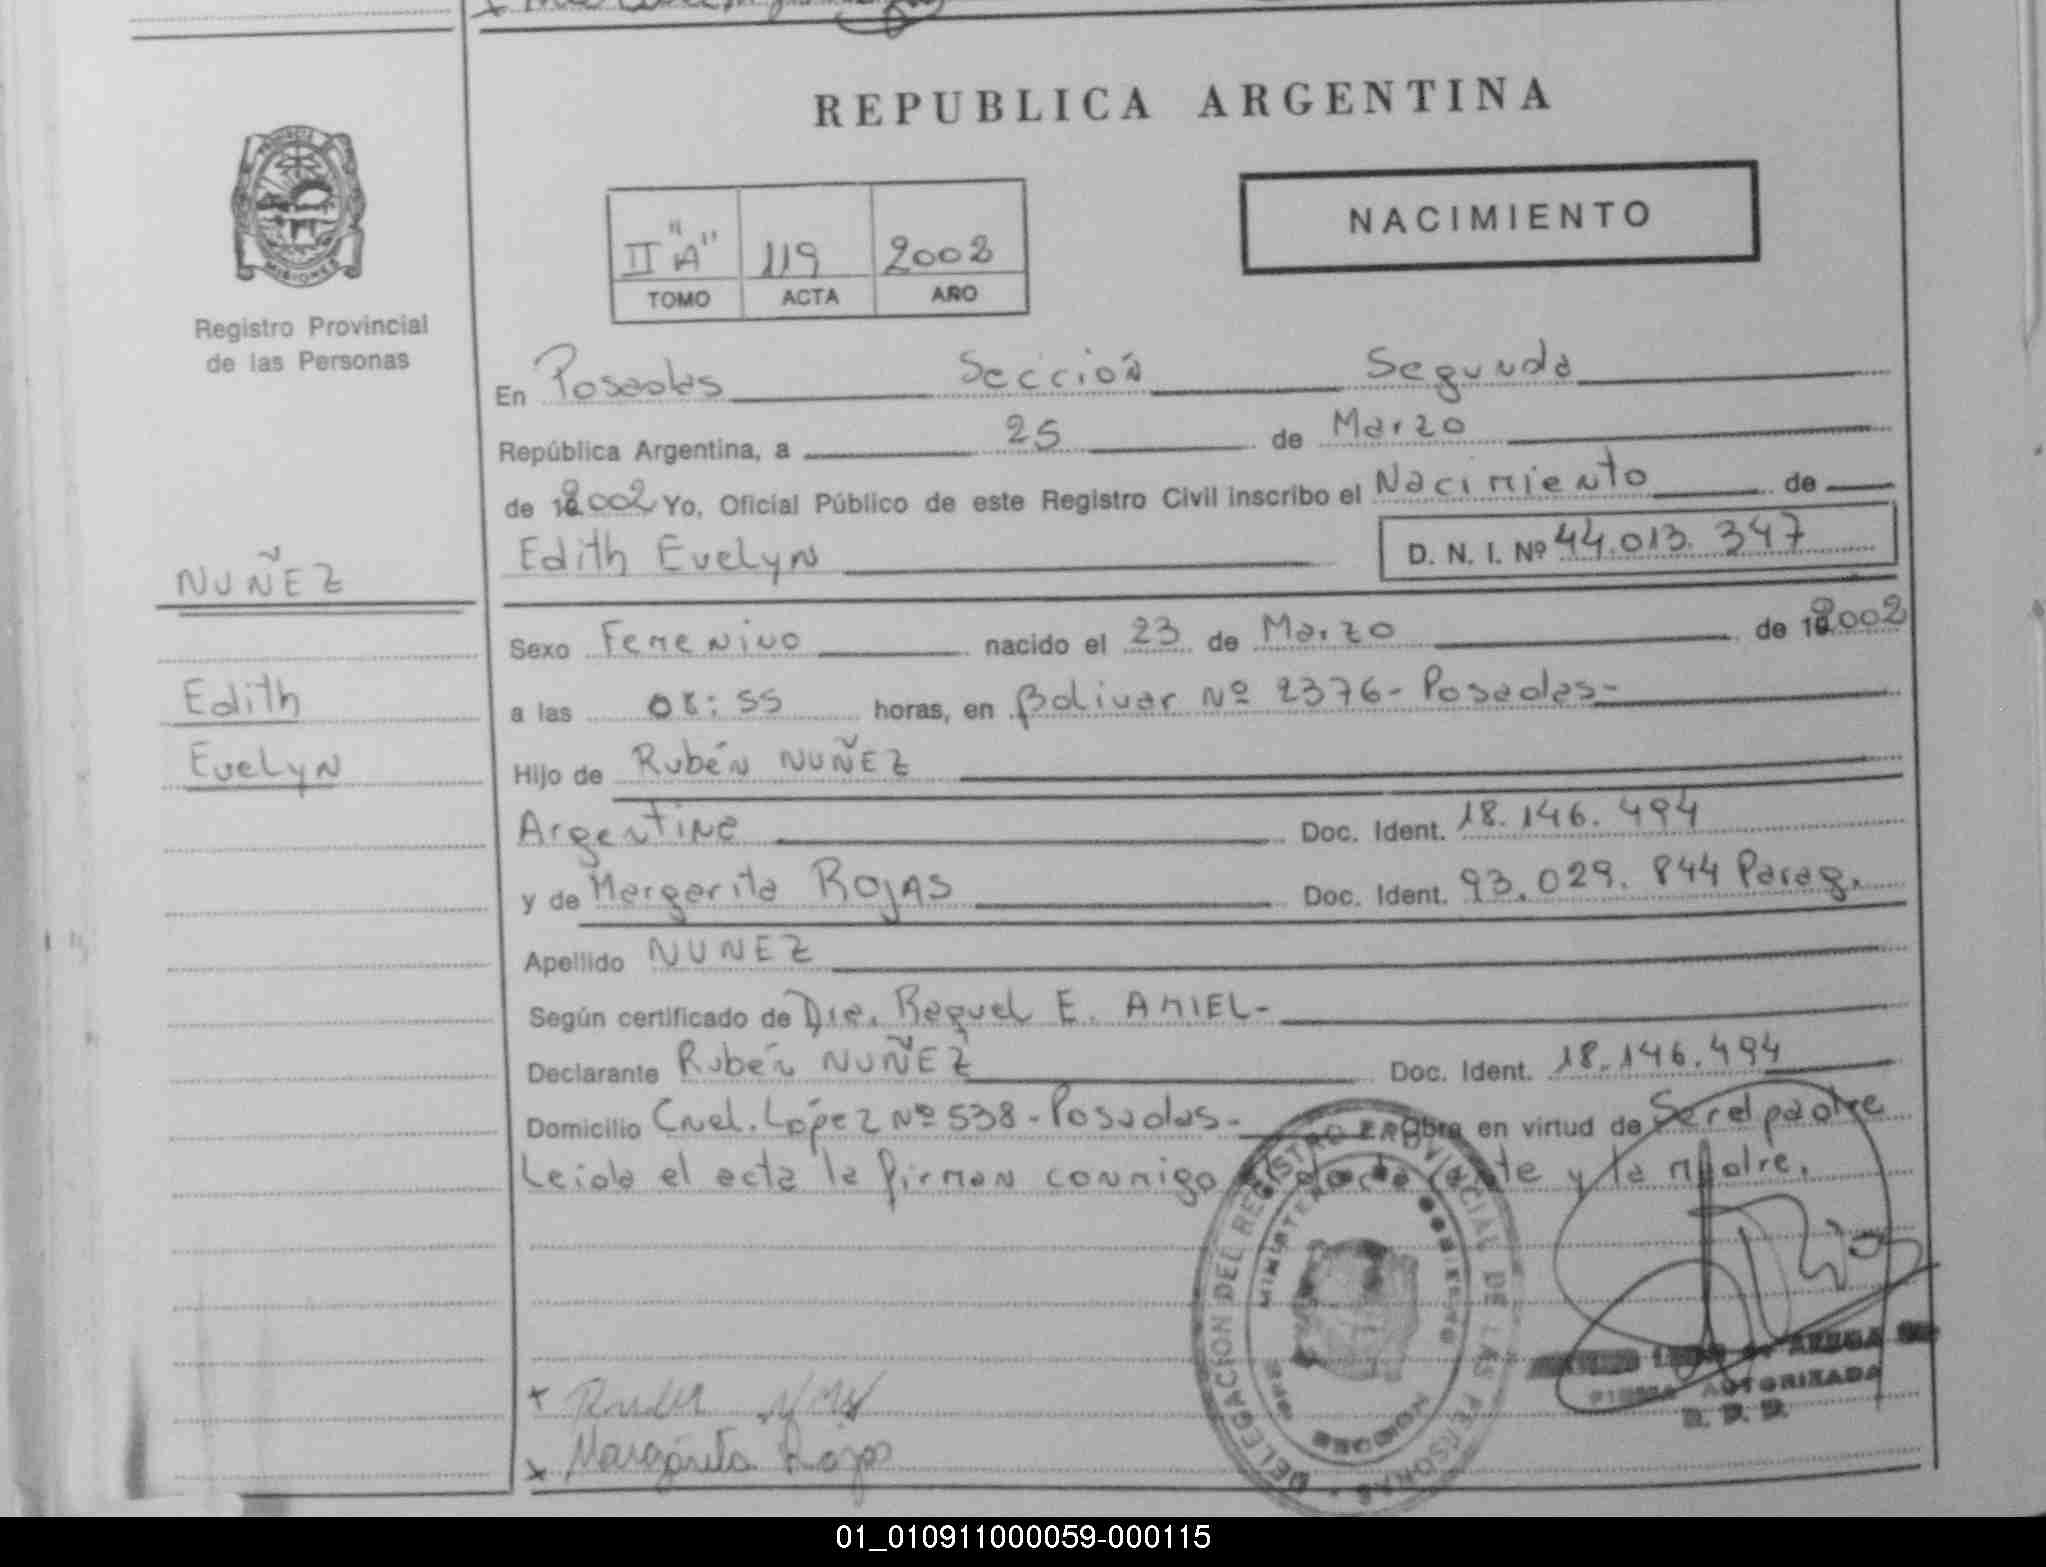 REPUBLICA ARGENTINA
PROVINCIA
MISIONES
Registro Provincial
de las Personas
II "A" 119 2002
TOMO ACTA AÑO
NACIMIENTO
En Posadas Sección Segunda
República Argentina, a 25 de Marzo
de 2002 Yo, Oficial Público de este Registro Civil inscribo el Nacimiento de
Edith Evelyn
D. N. I. Nº 44.013.347
NUÑEZ
Edith
Evelyn
Sexo Femenino nacido el 23 de Marzo de 2002
a las 08:55 horas, en Bolivar Nº 2376- Posadas-
Hijo de Rubén NUÑEZ
Argentina Doc. Ident. 18.146.494
y de Margarita ROJAS Doc. Ident. 93.029.844 Parag.
Apellido NUNEZ
Según certificado de Dra. Raquel E. AMIEL-
Declarante Rubén NUÑEZ Doc. Ident. 18.146.494
Domicilio Cnel. López Nº 538-Posadas- Obra en virtud de Ser el padre
Leida el acta la firman conmigo y la madre.
DELEGACION DEL REGISTRO PROVINCIAL DE LAS PERSONAS
MISIONES
AUTORIZADA
x
x Margarita Rojas
01_010911000059-000115